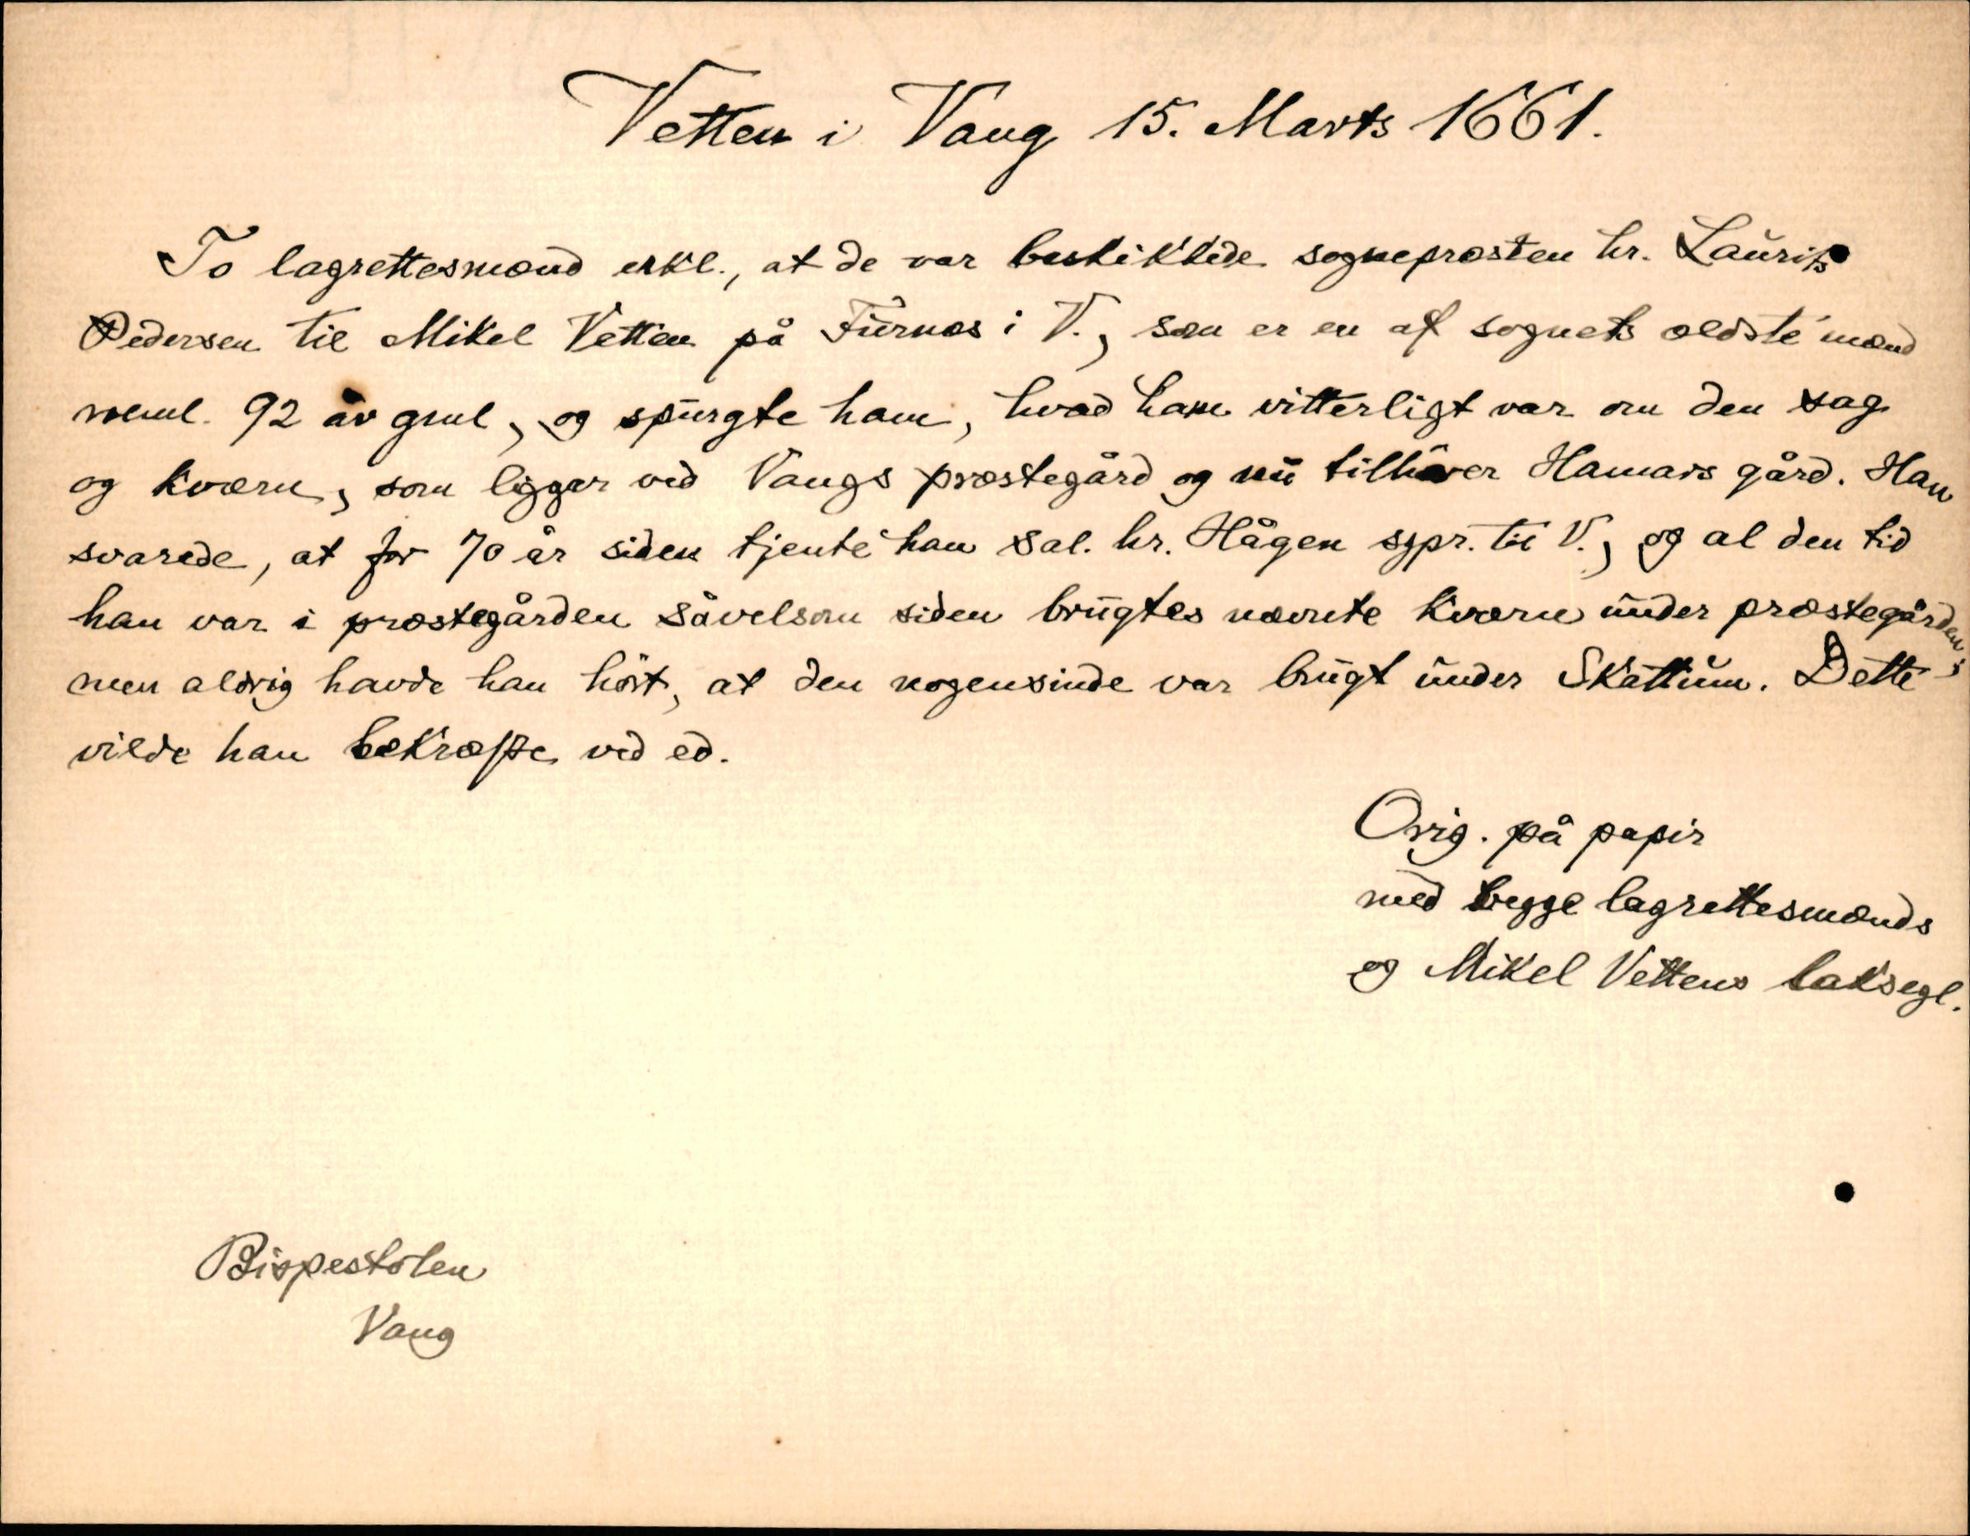 Vetten i Vang 15. Marts 1661.
To lagrettesmænd erkl., at de var beskikkede sognepræsten hr. Laurits
Pedersen til Mikel Vetten på Furnæs i V., som er en af sognets ældste mænd
neml. 92 år gml, og spurgte ham, hvad ham vitterligt var om den sag
og kværn, som ligger ved Vangs præstegård og nu tilhører Hamars gård. Han
svarede, at for 70 år siden tjente han sal. hr. Hågen sgpr. til V., og al den tid
han var i præstegården såvelsom siden brugtes nævnte kværn under præstegården,
men aldrig havde han hört, at den nogensinde var brugt under Skattum. Dette
vilde han bekræfte ved ed.
Orig. på papir
med begge lagrettesmænds
og Mikel Vettens laksegl.
Bispestolen
Vang